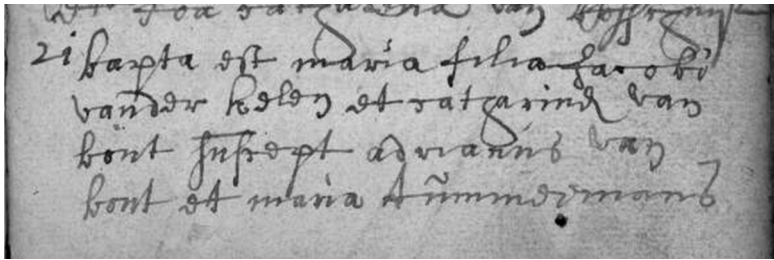 van
21 bapta est maria filia Jacobi
vander kelen et catharinae van
bont suscept adrianus van
bont et maria timmermans